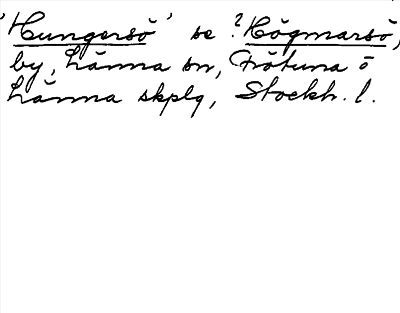 'Hungersö' se ?Högmarsö,
by, Länna sn, Frötuna o
Länna skplg, Stockh. l.